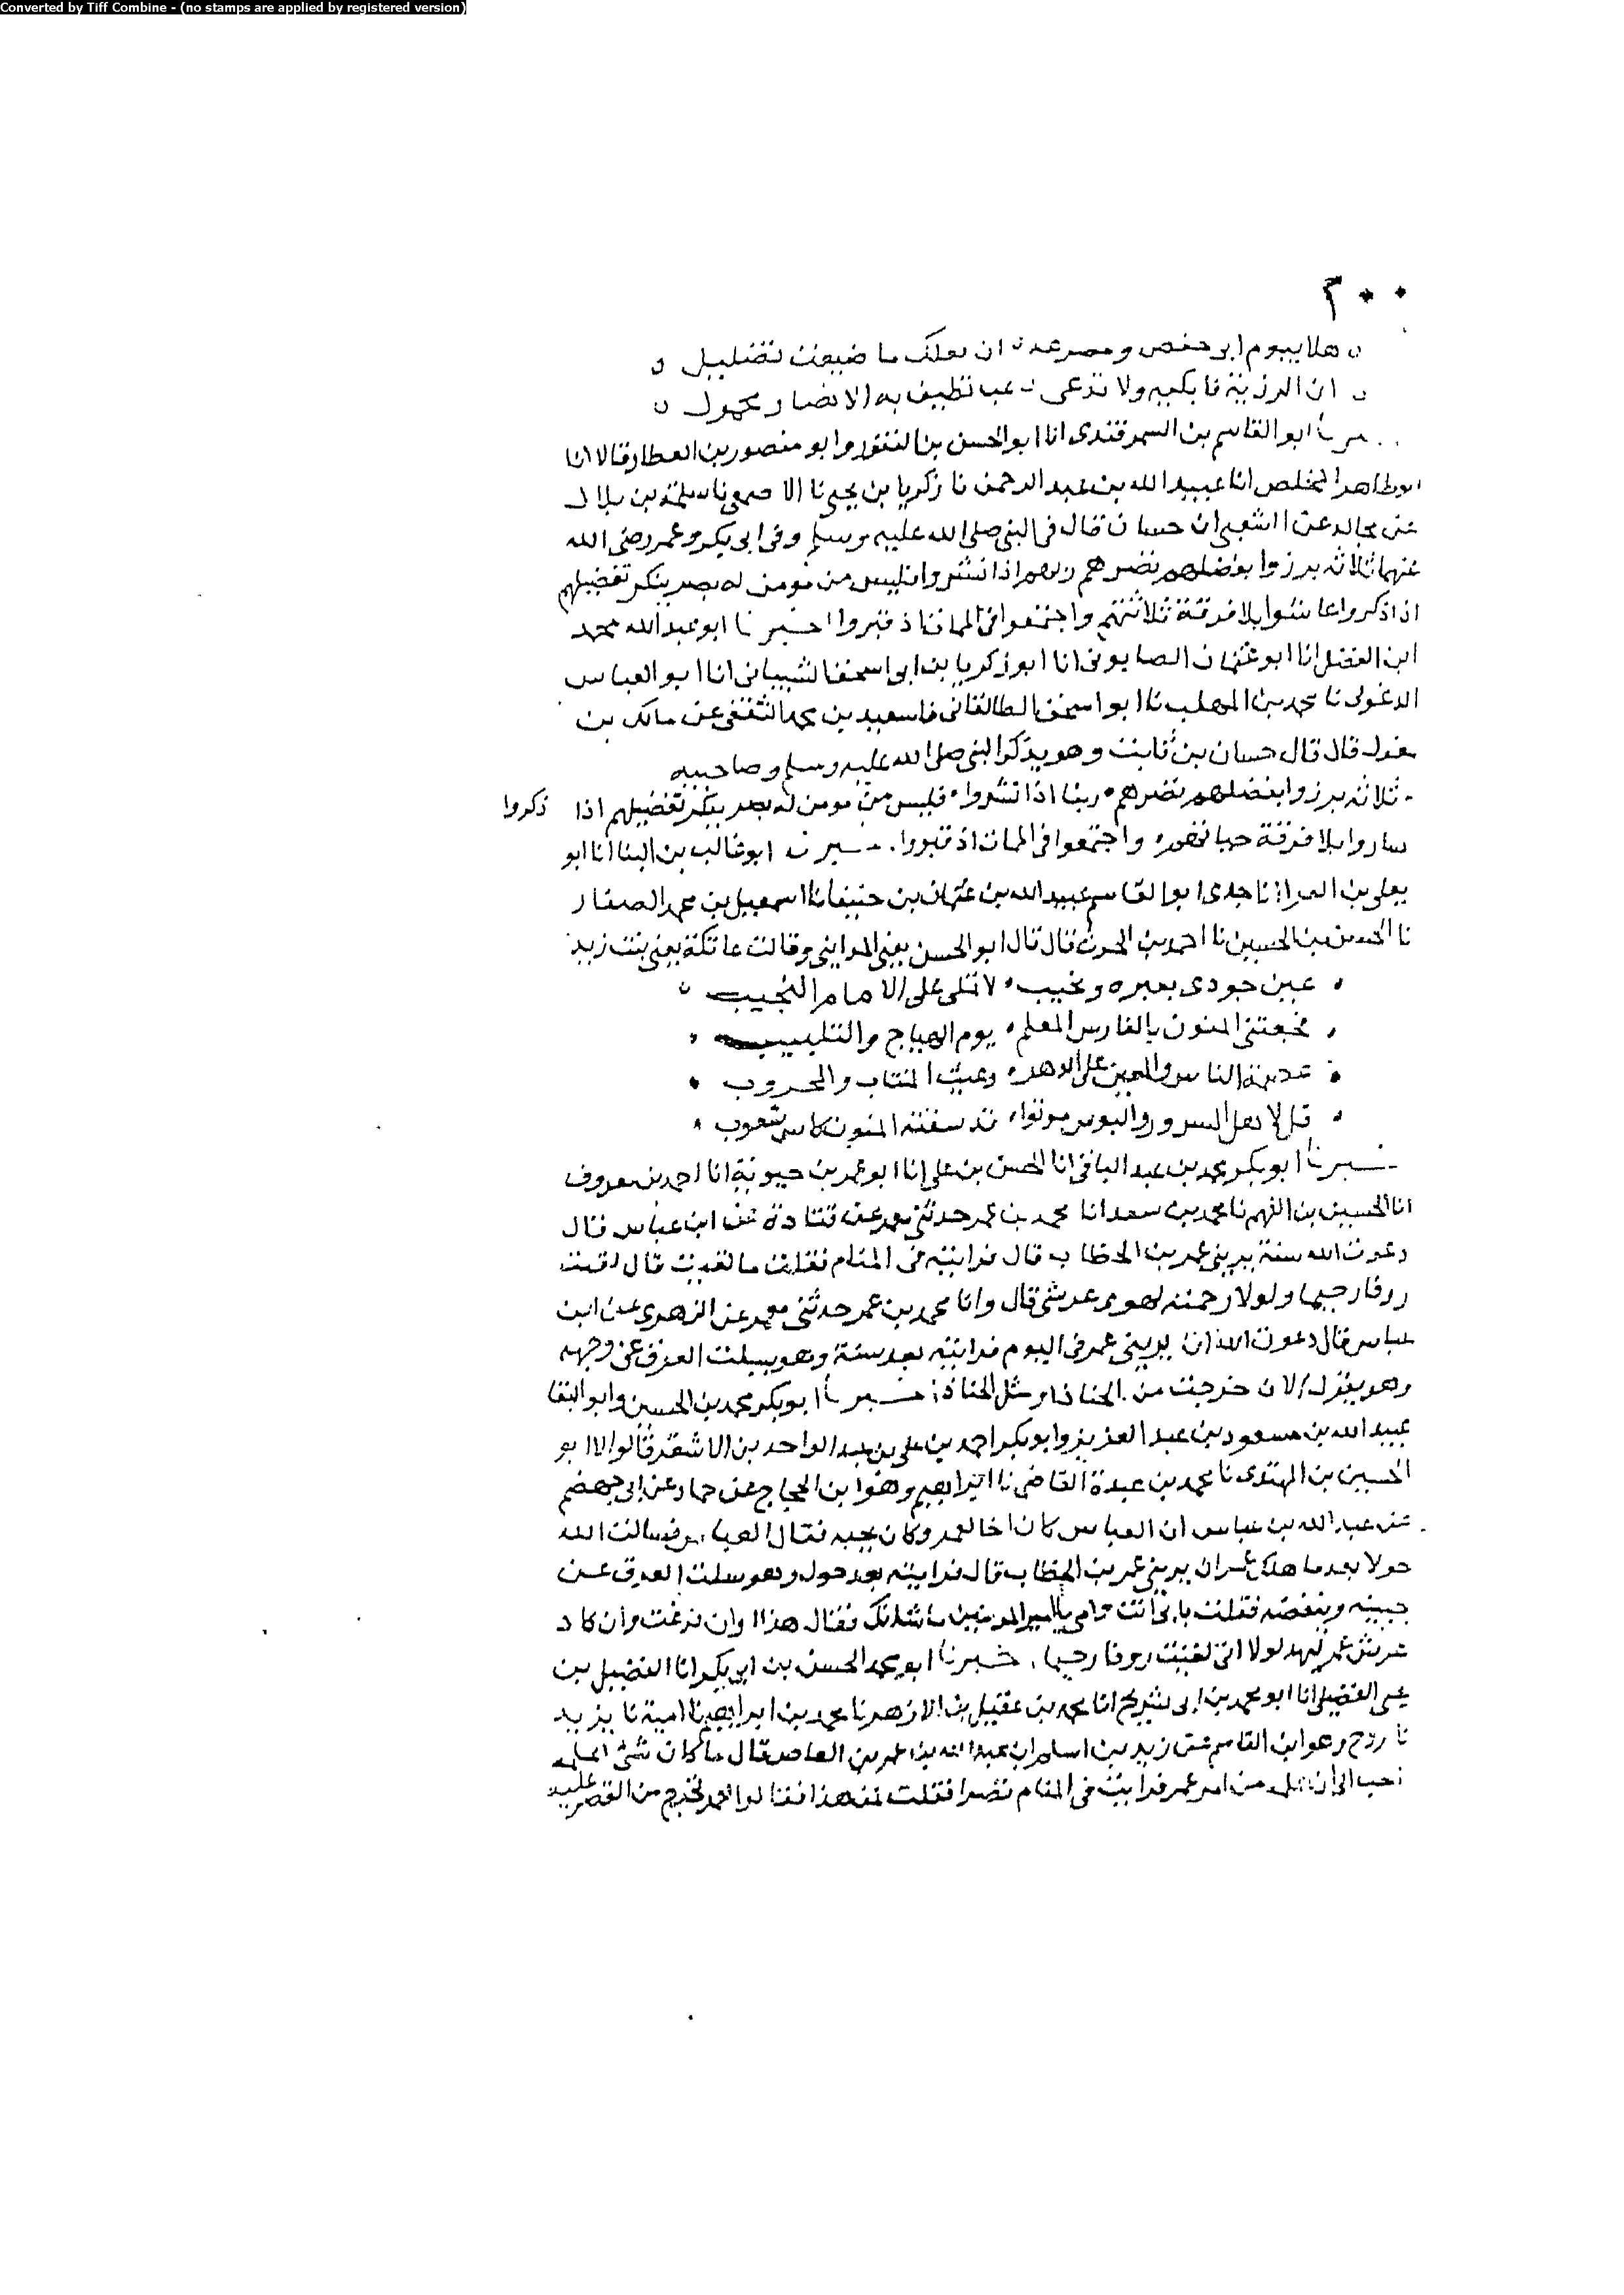 Converted by Tiff Combine - (no stamps are applied by registered version)
٣٠٠
هلا بيوم ابى حفص ومصرعه ان بعلك ما ضيعت تضليل
ان الرزية فابكيه ولا تدعى عب تطيف به الانصار محمول
ابو القاسم بن السمرقندى انا ابو الحسن بن النقور وابو منصور بن العطار قالا انا
ابو طاهر المخلص انا عبيد الله بن عبد الرحمن نا زكريا بن يحيى نا الاصمعى نا سلمة بن بلال
عن مجالد عن الشعبى ان حسان قال فى النبى صلى الله عليه وسلم وفى ابى بكر وعمر رضى الله
عنهما ثلاثة برزوا بفضلهم نضرهم ربهم اذا نشروا فليس من مومن له بصر ينكر تفضيلهم
اذا ذكروا عاشوا بلا فرقة ثلاثتهم واجتمعوا فى الممات اذ قبروا اخبرنا ابو عبد الله محمد
ابن الفضل انا ابو عثمان الصابونى انا ابو زكريا بن ابى اسحق الشيبانى انا ابو العباس
الدغولى نا محمد بن المهلب نا ابو اسحق الطالقانى نا سعيد بن محمد الثقفى عن مالك بن
مغول قال قال حسان بن ثابت وهو يذكر النبى صلى الله عليه وسلم وصاحبيه
ثلاثة برزوا بفضلهم نضرهم ربنا اذا نشروا فليس من مومن له بصر ينكر تفضيلهم اذا ذكروا
ساروا بلا فرقة حياتهم واجتمعوا فى الممات اذ قبروا ابو غالب بن البنا انا ابو
يعلى بن الفرا انا جدى ابو القاسم عبيد الله بن عثمان بن حنيفا نا اسمعيل بن محمد الصفار
نا الحسن بن الحسين نا احمد بن الحرث قال قال ابو الحسن يعنى المداينى وقالت عاتكة يعنى بنت زيد
عين جودى بعبره ونحيب لا تملى على الامام النجيب
فجعتنى المنون بالفارس المعلم يوم الهياج والتلبيب
عصمة الناس والمعين على الدهر وغيث المنتاب والمحروب
قل لاهل السرور والبوس موتوا قد سقته المنون كاس شعوب
ابو بكر محمد بن عبد الباقى انا الحسن بن على انا ابو عمر بن حيوية انا احمد بن معروف
انا الحسين بن الفهم نا محمد بن سعد انا محمد بن عمر حدثنى معمر عن قتادة عن ابن عباس قال
دعوت الله سنة يرينى عمر بن الخطاب قال فرايته فى المنام فقلت ما لقيت قال لقيت
روفا رحيما ولولا رحمته لهوى عرشى قال وانا محمد بن عمر حدثنى معمر عن الزهرى عن ابن
عباس قال دعوت الله ان يرينى عمر فى اليوم فرايته بعد سنة وهو يسلت العرق عن وجهه
وهو يقول الان خرجت من الحناذ او مثل الحناذ ابو بكر محمد بن الحسين وابو البقا
عبيد الله بن مسعود بن عبد العزيز وابو بكر احمد بن على بن عبد الواحد بن الاشقر قالوا انا ابو
الحسين بن المهتدى نا محمد بن عبدة القاضى نا ابراهيم وهو ابن الحجاج عن حماد عن ابى جهضم
عن عبد الله بن عباس ان العباس كان اخا لعمر وكان يحبه فقال العباس فسالت الله
حولا بعد ما هلك عمر ان يرينى عمر بن الخطاب قال فرايته بعد حول وهو يسلت العرق عن
جبينه وينفضه فقلت بابى انت وامى يا امير المومنين ما شانك فقال هذا اوان فرغت وان كاد
عرش عمر ليهد لولا انى لقيت روفا رحيما خبرنا ابو محمد الحسن بن ابى بكر انا الفضيل بن
يحيى الفضيلى انا ابو محمد بن ابى شريح انا محمد بن عقيل بن الازهر نا محمد بن ابراهيم نا امية نا يزيد
نا روح وهو ابن القاسم عن زيد بن اسلم ان عبد الله بن عمر بن العاص قال ما كان شى اعلمه
احب الى ان اعلمه من امر عمر فرايت فى المنام قصرا فقلت لمن هذا فقالوا لعمر فخرج من القصر عليه